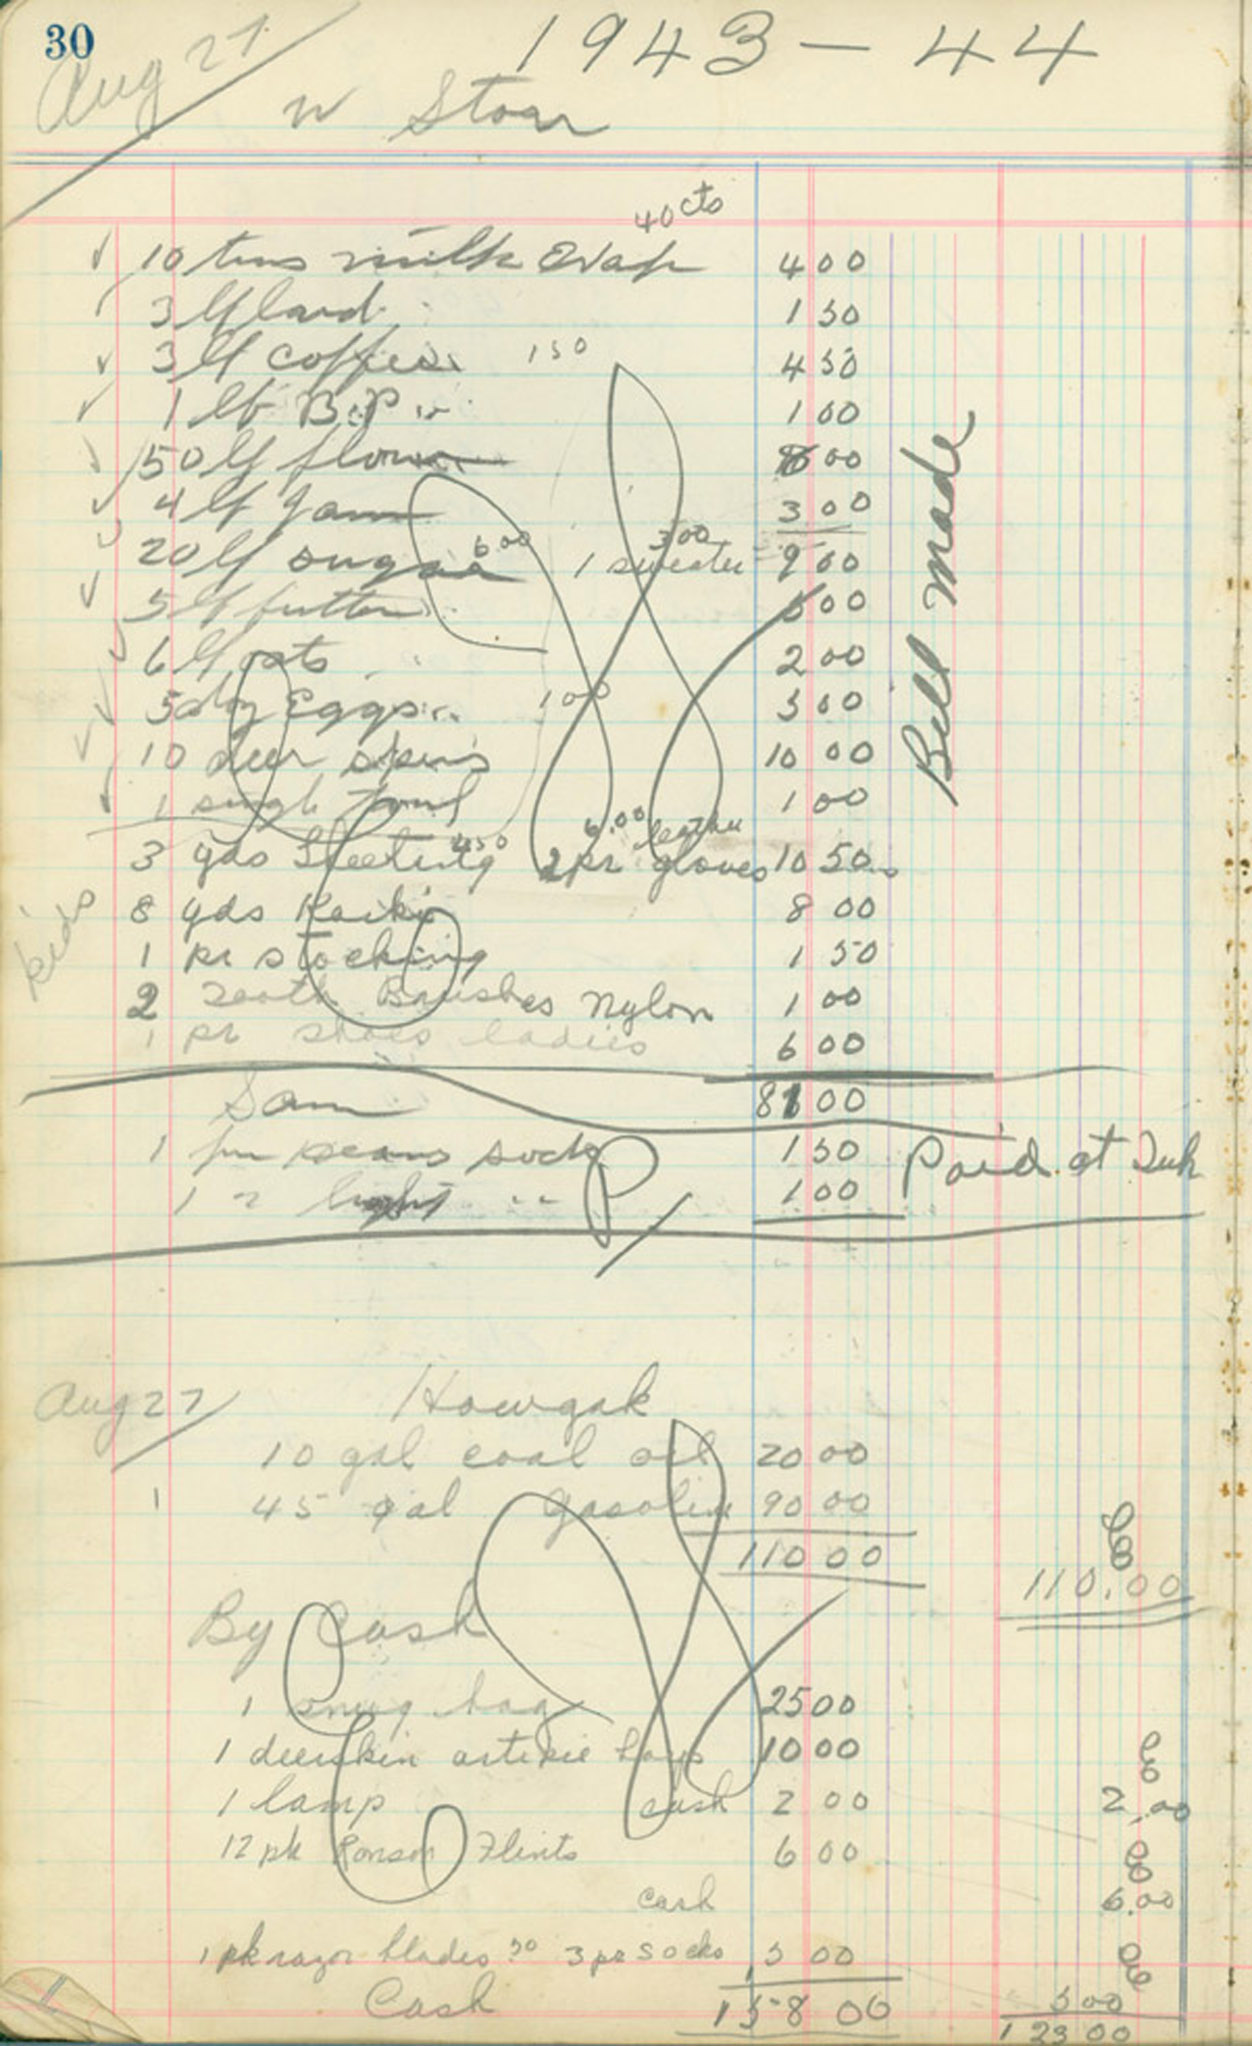 30
1943 - 44
Aug 27
W Storr
40 cts
10 tins milk Evap 4 00
3 lb lard 1 50
3 lb coffee 1 50 4 50
1 lb B.P 1 00
50 lb flour 00
4 lb Jam 3 00
6 00 3 00
20 lb sugar 1 sweater 9 00
5 lb butter 00
6 lb oats 2 00
5 doz Eggs 1 00 5 00
10 deer skins 10 00
1 1 00
4 50 6.00 leather
3 yds Sheeting 2 pr gloves 10 50
kids
8 yds Kaiki 8 00
1 pr stocking 1 50
2 Tooth Brushes Nylon 1 00
1 pr shoes ladies 6 00
Bill made
81 00
Sam
1 socks 1 50 Paid at Tuk
1 light 1 00
Aug 27
Howgak
10 gal coal oil 20 00
1 45 gal gasoline 90 00
110 00
110.00
By Cash
1 bag 25 00
1 deerskin artikie boys 10 00
1 lamp cash 2 00 2.00
12 pk Ronson Flints 6 00
cash 6.00
1 pk razor blades 50 3 pr socks 5 00
Cash 158 00 5 00
123 00